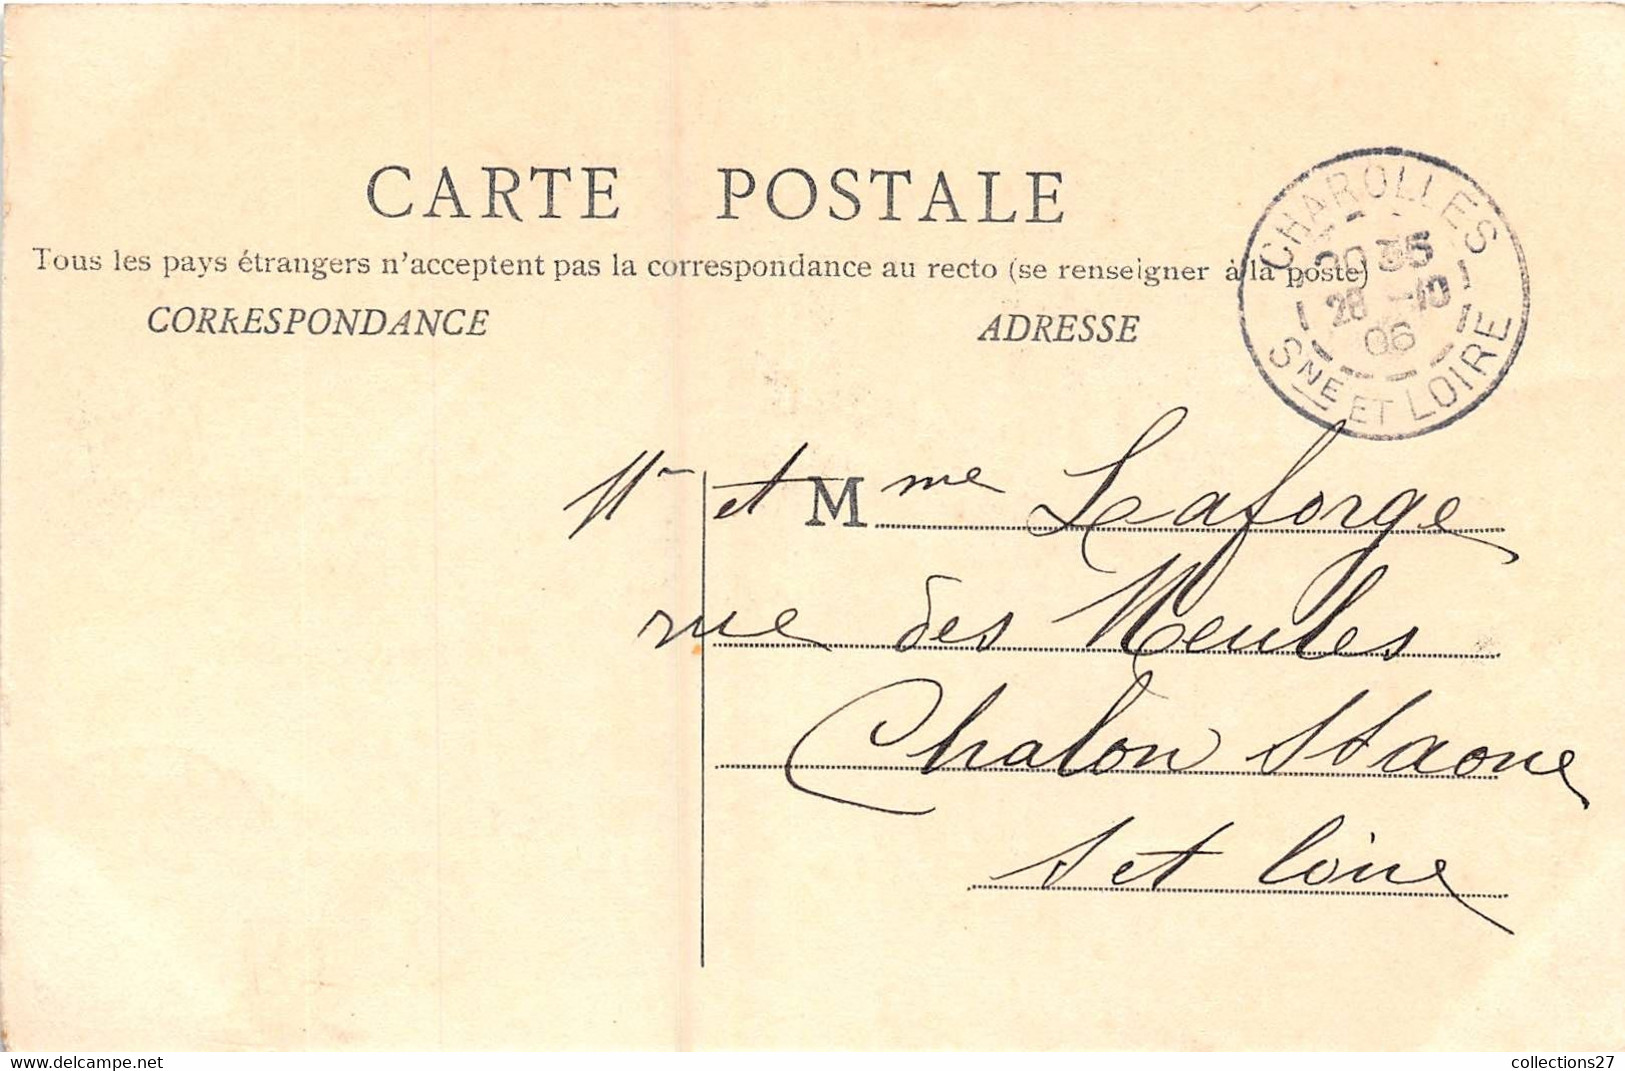 CARTE POSTALE
Tous les pays étrangers n'acceptent pas la correspondance au recto (se renseigner à la poste)
CORRESPONDANCE
ADRESSE
CHAROLLES
20 35
28 -10
06
SNE ET LOIRE
Mr et Mme Laforge
rue des Meules
Chalon S Saone
S et Loire
collections27